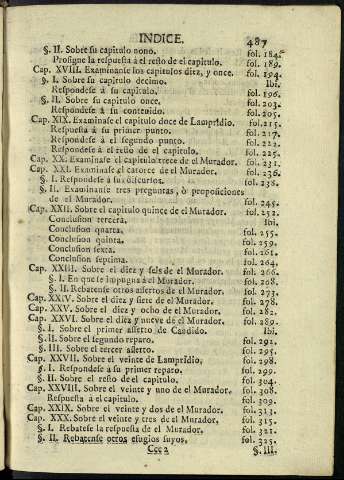 INDICE. 487
§. II. Sobre su capitulo nono. fol. 184.
Prosigue la respuesta à el resto de el capitulo. fol. 189.
Cap. XVIII. Examinanse los capitulos diez, y once. fol. 194.
§. I. Sobre su capitulo decimo. Ibi.
Respondese à su capitulo. fol. 196.
§. II. Sobre su capitulo once. fol. 203.
Respondese à su contenido. fol. 205.
Cap. XIX. Examinase el capitulo doce de Lampridio. fol. 215.
Respuesta à su primer punto. fol. 217.
Respondese à el segundo punto. fol. 222.
Respondese à el resto de el capitulo. fol. 225.
Cap. XX. Examinase el capitulo trece de el Murador. fol. 231.
Cap. XXI. Examinase el catorce de el Murador. fol. 236.
§. I. Respondese à sus discursos. fol. 238.
§. II. Examinanse tres preguntas, ò proposiciones
de el Murador. fol. 245.
Cap. XXII. Sobre el capitulo quince de el Murador. fol. 252.
Conclusion tercera. Ibi.
Conclusion quarta. fol. 255.
Conclusion quinta. fol. 259.
Conclusion sexta. fol. 261.
Conclusion septima. fol. 264.
Cap. XXIII. Sobre el diez y seis de el Murador. fol. 266.
§. I. En que se impugna à el Murador. fol. 268.
§. II. Rebatense otros assertos de el Murador. fol. 273.
Cap. XXIV. Sobre el diez y siete de el Murador. fol. 278.
Cap. XXV. Sobre el diez y ocho de el Murador. fol. 282.
Cap. XXVI. Sobre el diez y nueve de el Murador. fol. 289.
§. I. Sobre el primer asserto de Candido. Ibi.
§. II. Sobre el segundo reparo. fol. 292.
§. III. Sobre el tercer asserto. fol. 295.
Cap. XXVII. Sobre el veinte de Lampridio. fol. 298.
§. I. Respondese à su primer reparo. fol. 299.
§. II. Sobre el resto de el capitulo. fol. 304.
Cap. XXVIII. Sobre el veinte y uno de el Murador. fol. 308.
Respuesta à el capitulo. fol. 309.
Cap. XXIX. Sobre el veinte y dos de el Murador. fol. 313.
Cap. XXX. Sobre el veinte y tres de el Murador. fol. 315.
§. I. Rebatese la respuesta de el Murador. fol. 321.
§. II. Rebatense otros efugios suyos. fol. 325.
Ccc 2 §. III.